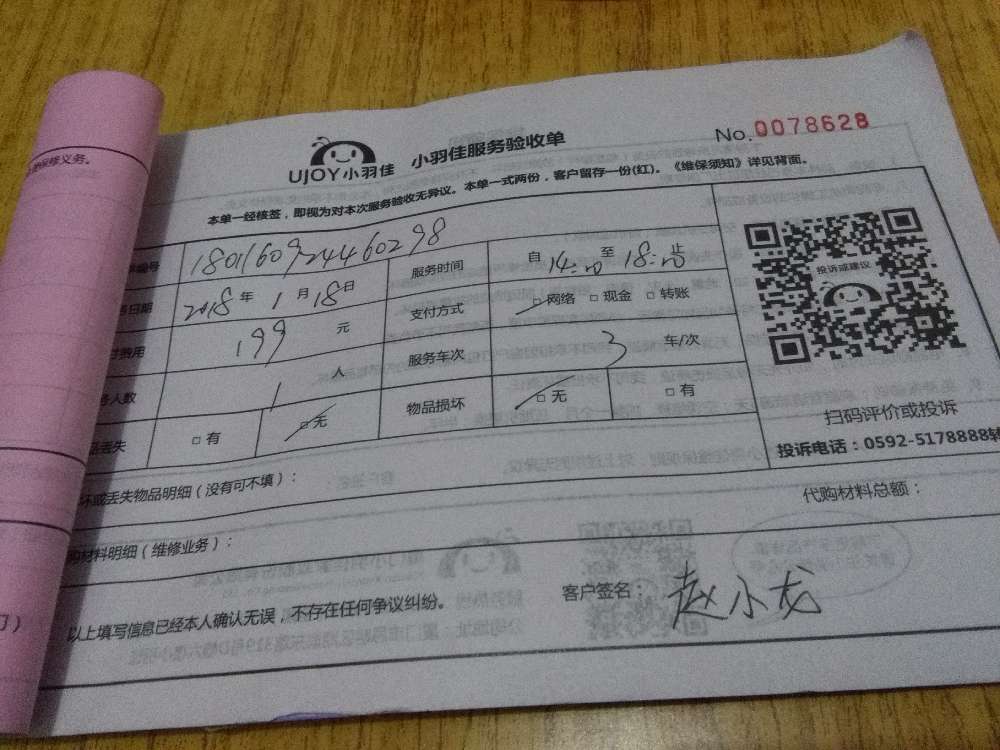 修义务。
UJOY小羽佳
小羽佳服务验收单
No. 0078628
本单一经核签，即视为对本次服务验收无异议。本单一式两份，客户留存一份(红)。《维保须知》详见背面。
编号 180160924460298 服务时间 自 14:00 至 18:00 止
日期 2018 年 1 月 18 日 支付方式 □ 网络 □ 现金 □ 转账
费用 199 元 服务车次 3 车/次
人数 1 人 物品损坏 □ 无 □ 有
丢失 □ 有 □ 无
投诉或建议
扫码评价或投诉
投诉电话：0592-5178888转
坏或丢失物品明细（没有可不填）：
代购材料总额：
购材料明细（维修业务）：
以上填写信息已经本人确认无误，不存在任何争议纠纷。
客户签名： 赵小龙